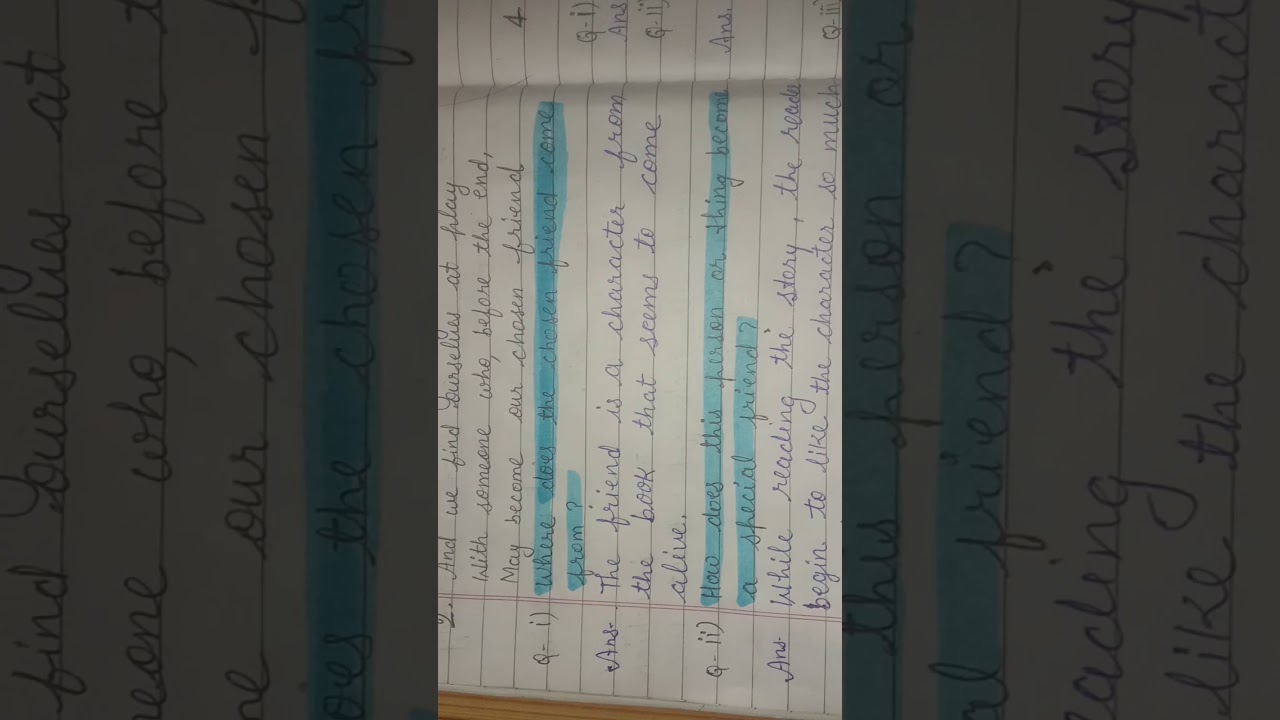 2. And we find Ourselves at play
With someone who, before the end,
May become our chosen friend
Q- i) Where does the chosen friend come
from?
Ans- The friend is a character from
the book that seems to come
alive.
Q- ii) How does this person or thing become
a special friend?
Ans- While reading the story, the reade
begin to like the character so much
4
Q-i)
Ans
Q-ii)
Ans.
Q-iii)